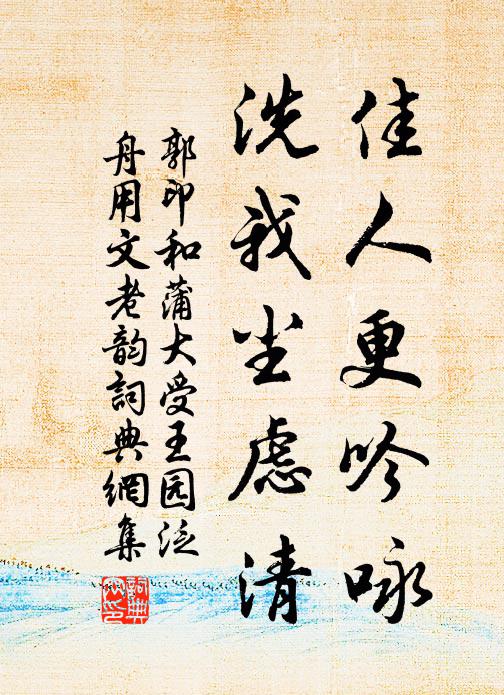 佳人更吟咏
洗我尘慮清
郭印和蒲大受王园泛
舟用文老韵詞典網集